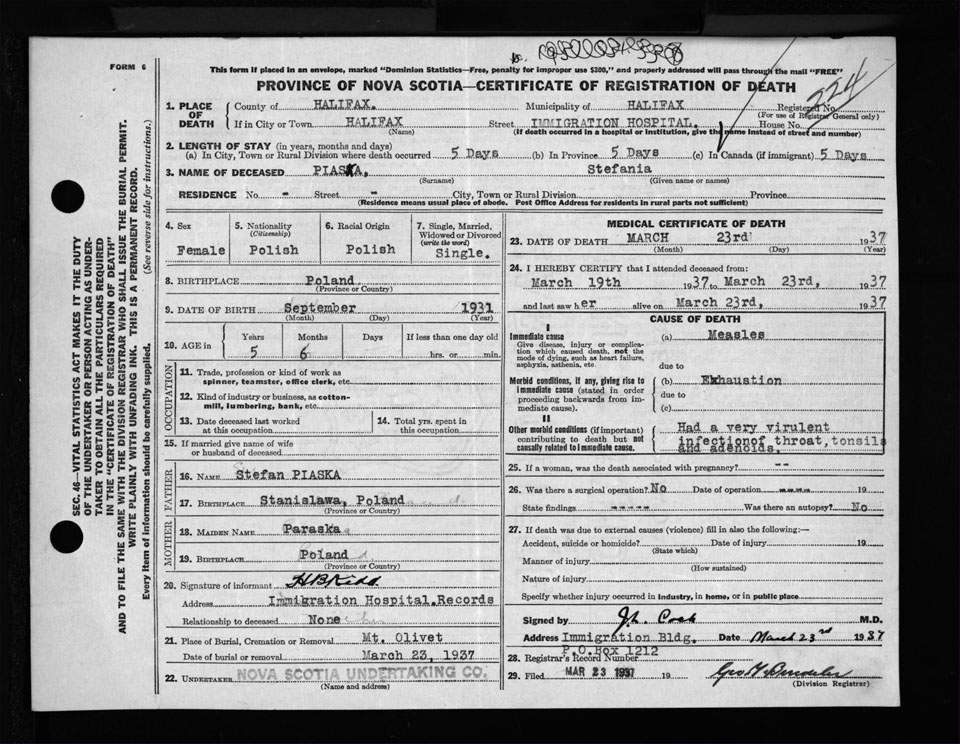 FORM 6
This form if placed in an envelope, marked "Dominion Statistics—Free, penalty for improper use $300," and properly addressed will pass through the mail "FREE"
PROVINCE OF NOVA SCOTIA—CERTIFICATE OF REGISTRATION OF DEATH
224
1. PLACE OF DEATH
County of HALIFAX. Municipality of HALIFAX Registered No.
(For use of Registrar General only)
If in City or Town HALIFAX Street IMMIGRATION HOSPITAL. House No.
(Name) (If death occurred in a hospital or institution, give the name instead of street and number)
2. LENGTH OF STAY (in years, months and days)
(a) In City, Town or Rural Division where death occurred 5 Days (b) In Province 5 Days (c) In Canada (if immigrant) 5 Days
3. NAME OF DECEASED PIASKA, Stefania
(Surname) (Given name or names)
RESIDENCE No. - Street - City, Town or Rural Division Province
(Residence means usual place of abode. Post Office Address for residents in rural parts not sufficient)
4. Sex
Female
5. Nationality
(Citizenship)
Polish
6. Racial Origin
Polish
7. Single, Married, Widowed or Divorced
(write the word)
Single.
8. BIRTHPLACE Poland
(Province or Country)
9. DATE OF BIRTH September 1931
(Month) (Day) (Year)
10. AGE in
Years Months Days If less than one day old
5 6 hrs. or min.
OCCUPATION
11. Trade, profession or kind of work as
spinner, teamster, office clerk, etc.
12. Kind of industry or business, as cotton-
mill, lumbering, bank, etc.
13. Date deceased last worked
at this occupation
14. Total yrs. spent in
this occupation
15. If married give name of wife
or husband of deceased
FATHER
16. NAME Stefan PIASKA
17. BIRTHPLACE Stanislawa, Poland
(Province or Country)
MOTHER
18. MAIDEN NAME Paraska
19. BIRTHPLACE Poland
(Province or Country)
20. Signature of informant H B Kidd
Address Immigration Hospital.Records
Relationship to deceased None
21. Place of Burial, Cremation or Removal Mt. Olivet
Date of burial or removal March 23, 1937
22. UNDERTAKER NOVA SCOTIA UNDERTAKING CO.
(Name and address)
MEDICAL CERTIFICATE OF DEATH
23. DATE OF DEATH MARCH 23rd 1937
(Month) (Day) (Year)
24. I HEREBY CERTIFY that I attended deceased from:
March 19th 1937 to March 23rd, 1937
and last saw her alive on March 23rd, 1937
CAUSE OF DEATH
I
Immediate cause (a) Measles
Give disease, injury or complica-
tion which caused death, not the
mode of dying, such as heart failure,
asphyxia, asthenia, etc.
due to
Morbid conditions, if any, giving rise to
immediate cause (stated in order
proceeding backwards from im-
mediate cause).
(b) Exhaustion
due to
(c)
II
Other morbid conditions (if important)
contributing to death but not
causally related to immediate cause.
Had a very virulent
infectionof throat,tonsils
and adenoids.
25. If a woman, was the death associated with pregnancy? --
26. Was there a surgical operation? No Date of operation ---- 19
State findings ----- Was there an autopsy? No
27. If death was due to external causes (violence) fill in also the following:—
Accident, suicide or homicide? Date of injury 19
(State which)
Manner of injury
(How sustained)
Nature of injury
Specify whether injury occurred in industry, in home, or in public place
Signed by M.D.
Address Immigration Bldg. Date March 23rd 1937
P.O.Box 1212
28. Registrar's Record Number
29. Filed MAR 23 1937 19
(Division Registrar)
SEC. 46—VITAL STATISTICS ACT MAKES IT THE DUTY
OF THE UNDERTAKER OR PERSON ACTING AS UNDER-
TAKER TO OBTAIN ALL THE PARTICULARS REQUIRED
IN THE "CERTIFICATE OF REGISTRATION OF DEATH"
AND TO FILE THE SAME WITH THE DIVISION REGISTRAR WHO SHALL ISSUE THE BURIAL PERMIT.
WRITE PLAINLY WITH UNFADING INK. THIS IS A PERMANENT RECORD.
Every item of information should be carefully supplied. (See reverse side for instructions.)